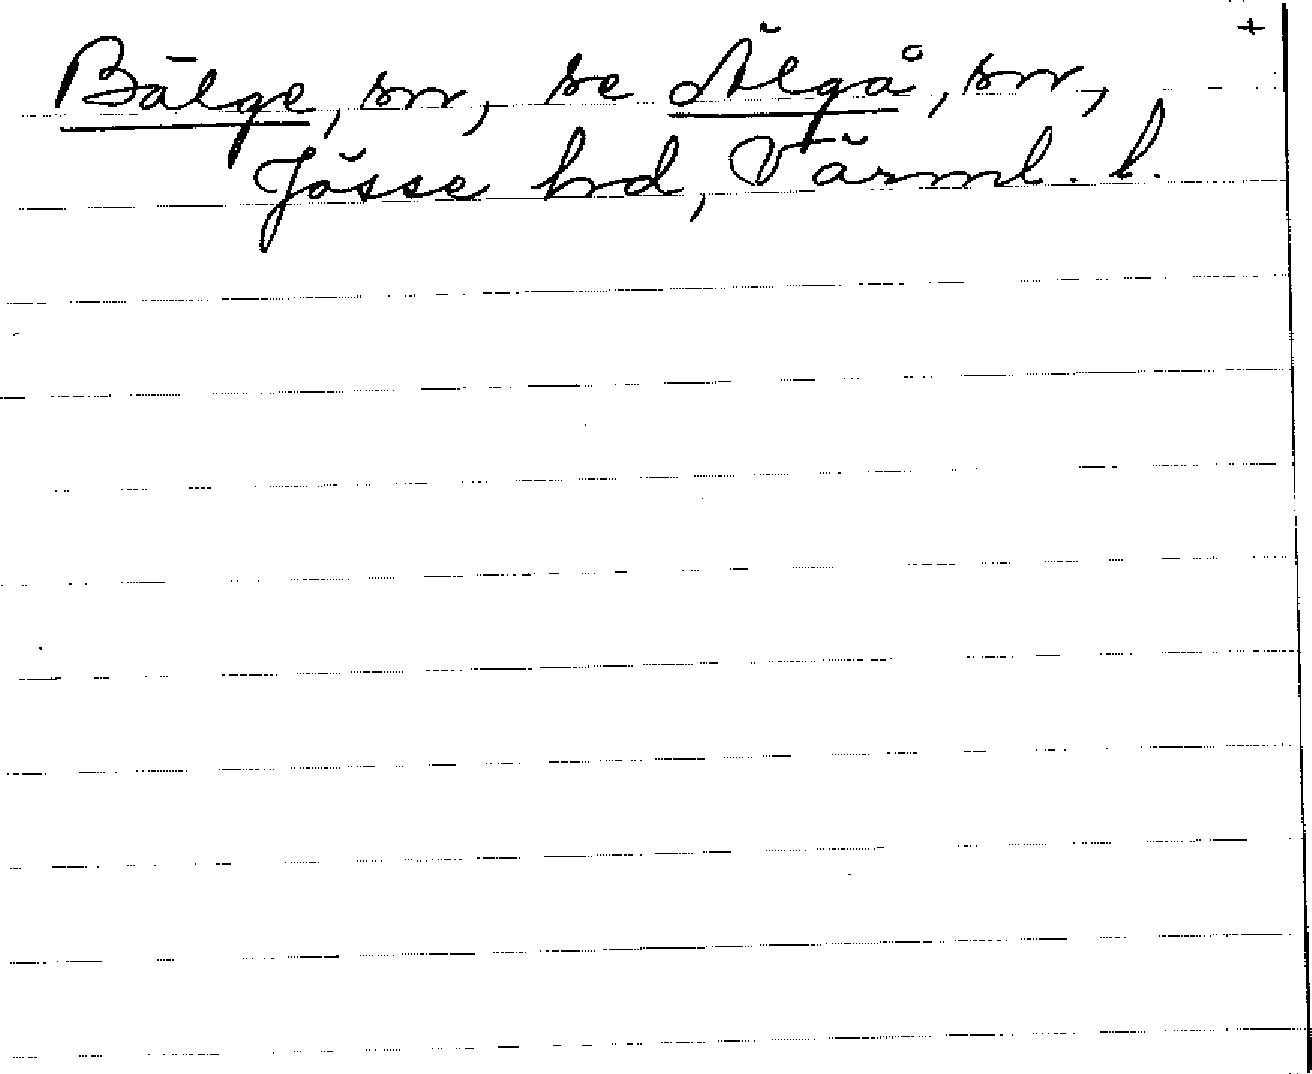 +
Bälge, sn, se Älgå, sn,
Jösse hd, Värml. l.